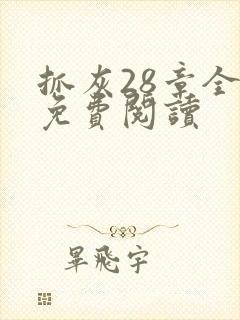 抓灰28章全
免費閱讀
畢飛宇